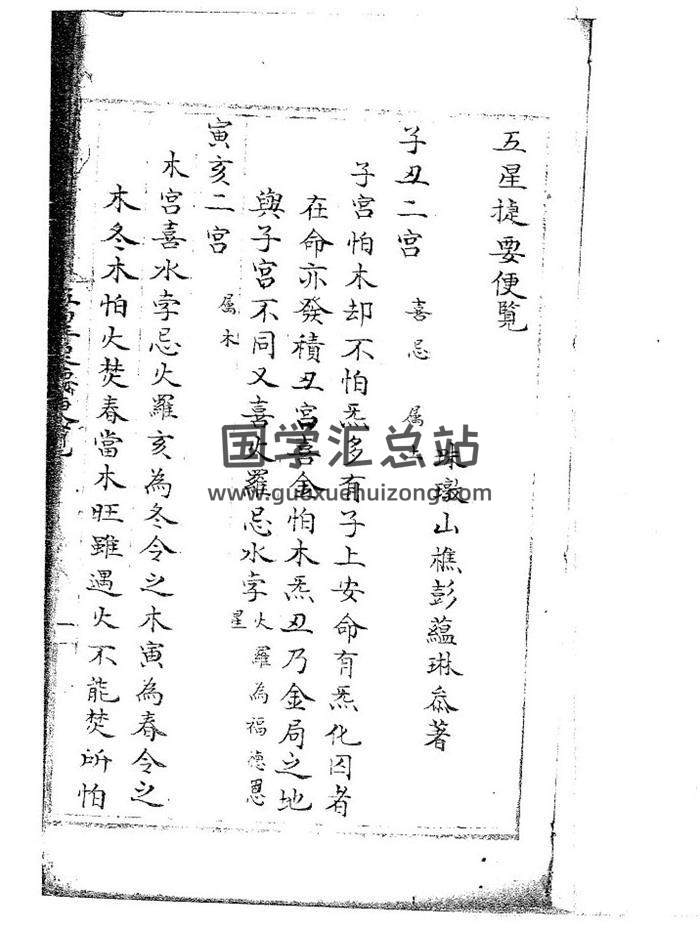 五星捷要便覧
珠璈山樵彭蘊琳叅著
子丑二宮 喜忌 属土
子宮怕木却不怕炁多有子上安命有炁化囚者
在命亦發積丑宮喜金怕木炁丑乃金局之地
與子宮不同又喜火羅忌水孛火羅為福德恩星
寅亥二宮 属木
木宮喜水孛忌火羅亥為冬令之木寅為春令之
木冬木怕火焚春當木旺雖遇火不能焚所怕
国学汇总站
www.guoxuehuizong.com